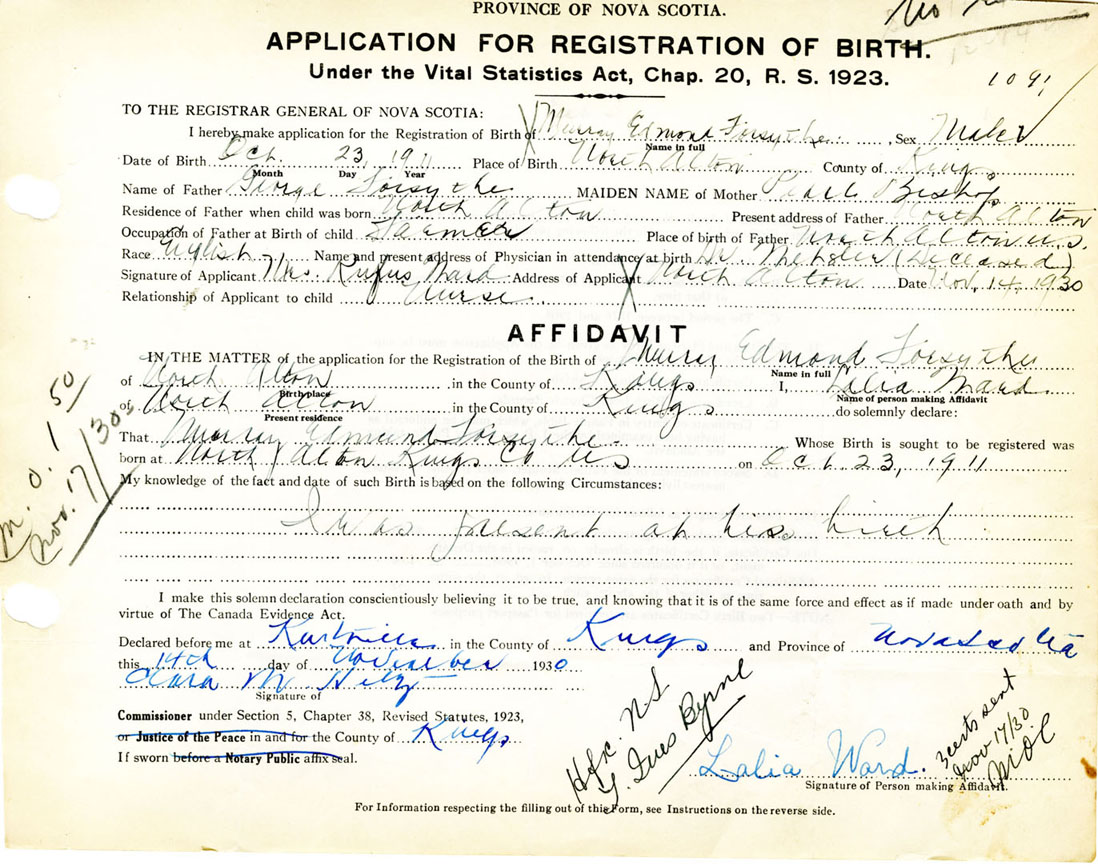 PROVINCE OF NOVA SCOTIA.
APPLICATION FOR REGISTRATION OF BIRTH.
Under the Vital Statistics Act, Chap. 20, R. S. 1923.
1091
TO THE REGISTRAR GENERAL OF NOVA SCOTIA:
I hereby make application for the Registration of Birth of Murray Edmond Forsythe, Sex Male
Name in full
Date of Birth Oct. 23, 1911 Place of Birth North Alton County of Kings
Month Day Year
Name of Father George Forsythe MAIDEN NAME of Mother Pearl Bishop
Residence of Father when child was born North Alton Present address of Father North Alton
Occupation of Father at Birth of child Farmer Place of birth of Father North Alton N.S.
Race English Name and present address of Physician in attendance at birth Dr Webster (Deceased)
Signature of Applicant Mrs. Rufus Ward Address of Applicant North Alton Date Nov. 14, 1930
Relationship of Applicant to child Nurse
AFFIDAVIT
IN THE MATTER of the application for the Registration of the Birth of Murray Edmond Forsythe
Name in full
of North Alton in the County of Kings I, Lalia Ward
Birth place Name of person making Affidavit
of North Alton in the County of Kings do solemnly declare:
Present residence
That Murray Edmund Forsythe Whose Birth is sought to be registered was
born at North Alton Kings Co NS on Oct. 23, 1911
My knowledge of the fact and date of such Birth is based on the following Circumstances:
I was present at his birth
I make this solemn declaration conscientiously believing it to be true, and knowing that it is of the same force and effect as if made under oath and by
virtue of The Canada Evidence Act.
Declared before me at Kentville in the County of Kings and Province of Nova Scotia
this 14th day of November 1930
Clara M Hiltz
Signature of
Commissioner under Section 5, Chapter 38, Revised Statutes, 1923,
or Justice of the Peace in and for the County of Kings
If sworn before a Notary Public affix seal.
Lalia Ward.
Signature of Person making Affidavit.
For Information respecting the filling out of this Form, see Instructions on the reverse side.
M. O. 1 50
Nov. 17/30
Hfx. N.S
Ines Byrne
3 certs sent
Nov 17/30